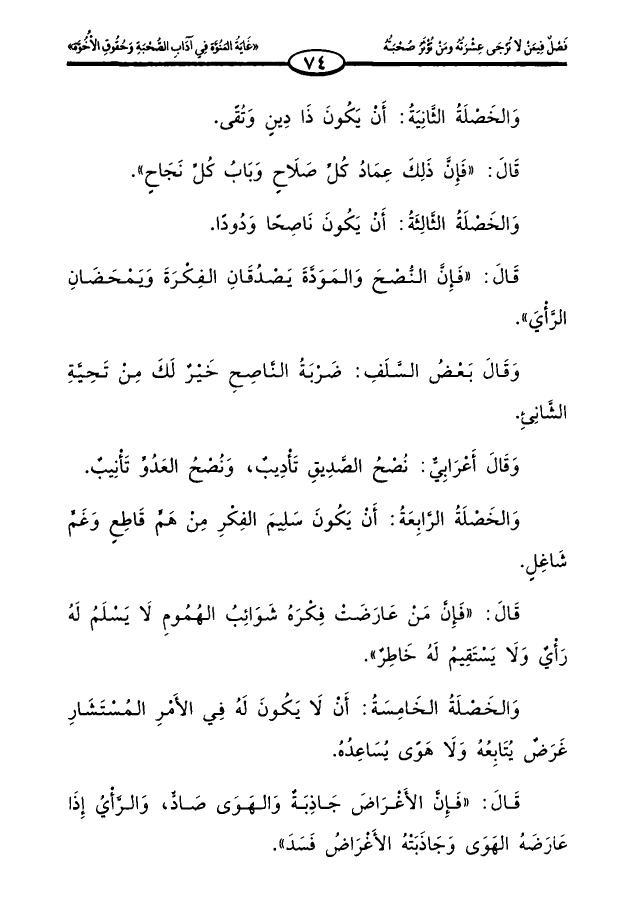 فَصْلٌ فِيمَنْ لَا تُرْجَى عِشْرَتُهُ وَمَنْ تُؤْثَرُ صُحْبَتُهُ
«غَايَةُ المَنُوَّه فِي آدَابِ الصُّحْبَةِ وَحُقُوقِ الأُخُوَّه»
٧٤
وَالخَصْلَةُ الثَّانِيَةُ: أَنْ يَكُونَ ذَا دِينٍ وَتُقًى.
قَالَ: «فَإِنَّ ذَلِكَ عِمَادُ كُلِّ صَلَاحٍ وَبَابُ كُلِّ نَجَاحٍ».
وَالخَصْلَةُ الثَّالِثَةُ: أَنْ يَكُونَ نَاصِحًا وَدُودًا.
قَالَ: «فَإِنَّ النُّصْحَ وَالمَوَدَّةَ يَصْدُقَانِ الفِكْرَةَ وَيَمْحَضَانِ
الرَّأْيَ».
وَقَالَ بَعْضُ السَّلَفِ: ضَرْبَةُ النَّاصِحِ خَيْرٌ لَكَ مِنْ تَحِيَّةِ
الشَّانِئِ.
وَقَالَ أَعْرَابِيٌّ: نُصْحُ الصَّدِيقِ تَأْدِيبٌ، وَنُصْحُ العَدُوِّ تَأْنِيبٌ.
وَالخَصْلَةُ الرَّابِعَةُ: أَنْ يَكُونَ سَلِيمَ الفِكْرِ مِنْ هَمٍّ قَاطِعٍ وَغَمٍّ
شَاغِلٍ.
قَالَ: «فَإِنَّ مَنْ عَارَضَتْ فِكْرَهُ شَوَائِبُ الهُمُومِ لَا يَسْلَمُ لَهُ
رَأْيٌ وَلَا يَسْتَقِيمُ لَهُ خَاطِرٌ».
وَالخَصْلَةُ الخَامِسَةُ: أَنْ لَا يَكُونَ لَهُ فِي الأَمْرِ المُسْتَشَارِ
غَرَضٌ يُتَابِعُهُ وَلَا هَوًى يُسَاعِدُهُ.
قَالَ: «فَإِنَّ الأَغْرَاضَ جَاذِبَةٌ وَالهَوَى صَادٌّ، وَالرَّأْيُ إِذَا
عَارَضَهُ الهَوَى وَجَاذَبَتْهُ الأَغْرَاضُ فَسَدَ».